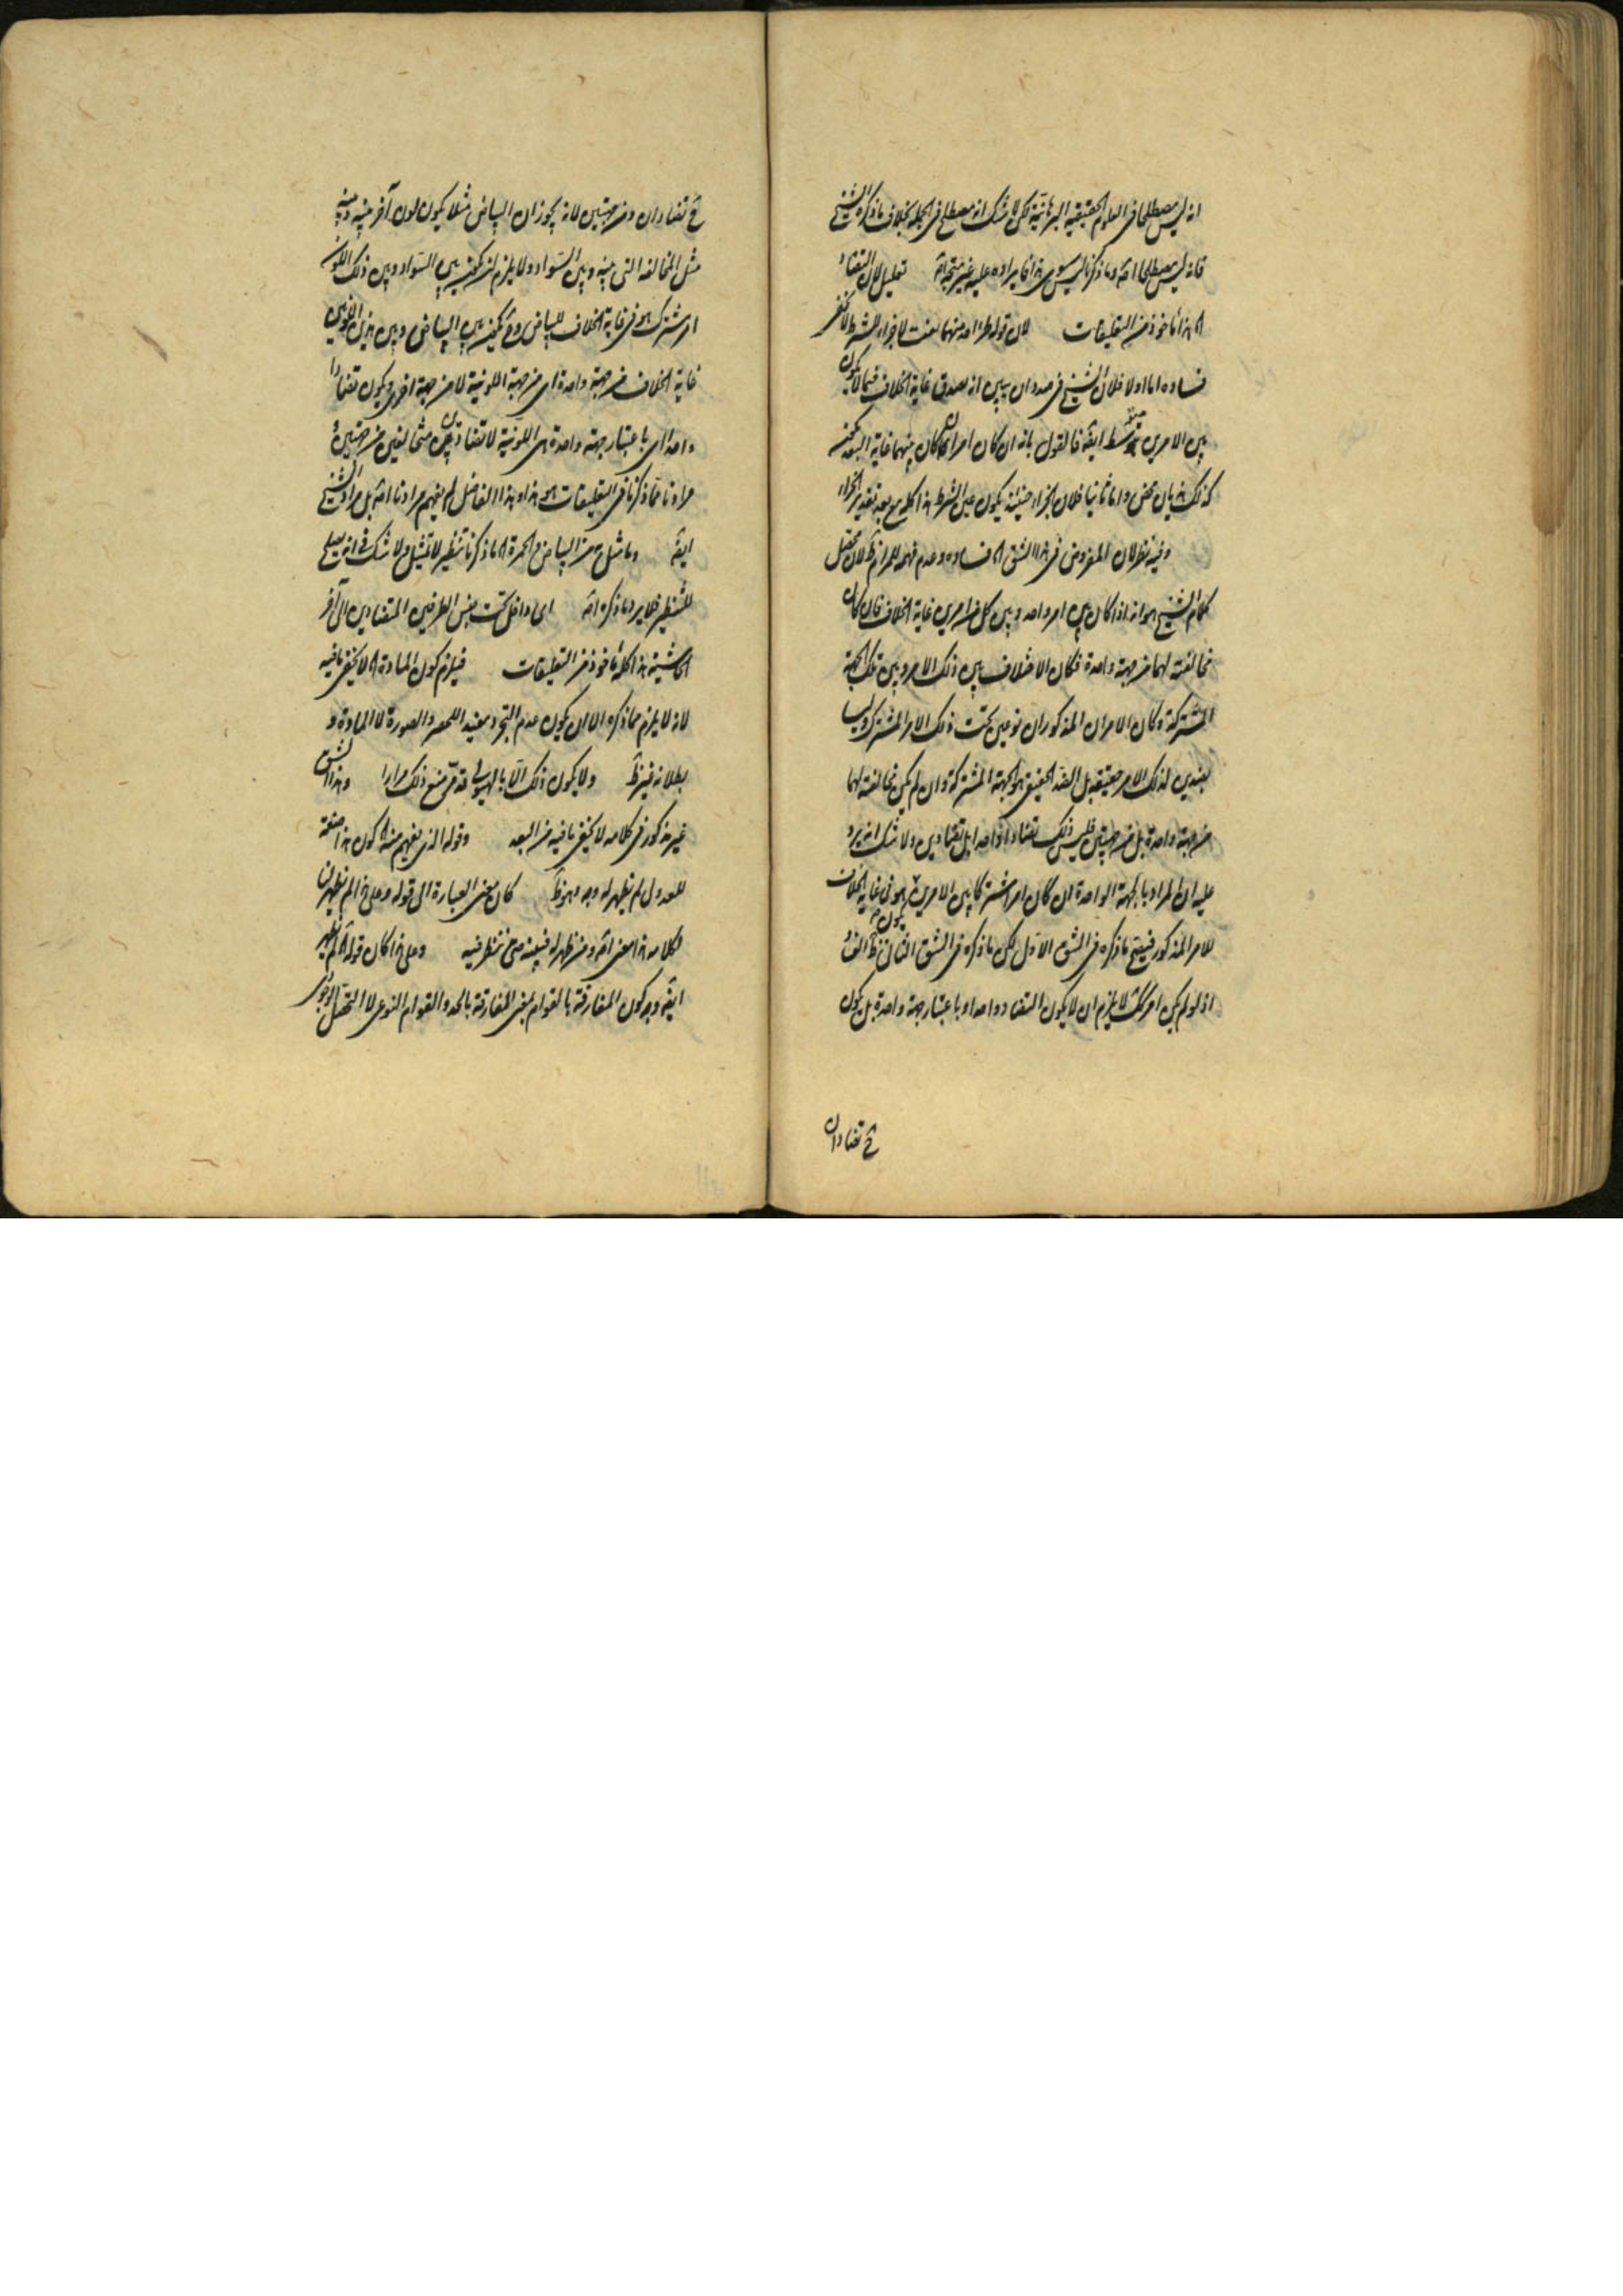 انه ليس مصطلحا في العلوم الحقيقية البرهانية لكن لا شك انه مصطلح في الجملة بخلاف ما ذكره الشيخ
فانه ليس مصطلحا اصلا وما ذكرنا ليس سوى هذا فايراده عليه غير متجه اصلا تعليل لان التضاد
هذا مأخوذ من التعليقات لان قوله طرا احد منهما نعت لا جزاء للشرط لا يخفى
فساده اما اولا فلان الشيخ في صدد ان يبين انه يصدق غاية الخلاف فيما لا يكون
بين الامرين متوسط ايضا فالقول بانه ان كان امران كان بينهما غاية البعد لكنه
كذلك هذيان محض واما ثانيا فلان الجزاء حينئذ يكون عين الشرط هذا كله مع بعد تقدير الجزاء
وفيه نظر لان المفروض في هذا الشق فساده وعدم فهمه للمرام لان محصل
كلام الشيخ هو انه اذا كان بين امر واحد وبين كل من امرين غاية الخلاف فان كان
مخالفته لهما من جهة واحدة فكان الاختلاف بين ذلك الامر وبين تلك الجهة
المشتركة وكان الامران المذكوران نوعين تحت ذلك الامر المشترك وليسا
بضدين لذلك الامر حقيقة بل الضد الحقيقي هو الجهة المشتركة وان لم يكن مخالفته لهما
من جهة واحدة بل من جهتين فليس ذلك تضادا واحدا بل تضادين ولا شك انه يرد
عليه ان المراد بالجهة الواحدة ان كان امرا مشتركا بين الامرين هو في غاية الخلاف
للامر المذكور فيصح ما ذكره في الشق الاول لكن ما ذكره في الشق الثاني
اذ لو لم يكن امر كذلك لا يلزم ان لا يكون التضاد واحدا وباعتبار جهة واحدة بل يكون
ح تضادان
ح تضادان ومن جهتين لانه يجوز ان البياض مثلا يكون لون آخر بينه وبينه
مثل المخالفة التي بينه وبين السواد ولا يلزم ان يكون بين السواد وبين ذلك اللون
امر مشترك هو في غاية الخلاف للبياض وح يكون بين البياض وبين هذين اللونين
غاية الخلاف من جهة واحدة اي من جهة اللونية لا من جهة اخرى ويكون تضادا
واحدا اي باعتبار جهة واحدة هي اللونية لا تضادين متخالفين من جهتين
مرادنا مما ذكرنا في التعليقات هو هذا وهذا الفاضل لم يفهم مرادنا اصلا بل مراد الشيخ
ايضا وما مثل به من البياض والحمرة ما ذكرنا تنظير لا تمثيل ولا شك في انه يصلح
للتنظير فلا يرد ما ذكره اصلا اي داخل تحت جنس الطرفين المتضادين الى آخر
الحاشية هذا كله مأخوذ من التعليقات فيلزم كون المادة لا يخفى ما فيه
لانه لا يلزم مما ذكره الا ان يكون عدم التجرد مفيد اللحصر والصورة لا المادة و
بطلانه غير ولا يكون ذلك الا بالهيولى قد مر منع ذلك مرارا وهذا الشق
غير مذكور في كلامه لا يخفى ما فيه من البعد وقوله الذي يفهم منه كون هذا صنعة
للعدول لم يظهر له وجه وهو كان معنى العبارة الى قوله وعلى هذا لم يظهر لنا
لكلامه هذا معنى اصلا ومن ظهر له فليبينه حتى ننظر فيه وعلى هذا كان قوله لم يظهر
ايضا وجه كون المفارقة بالقوام بمعنى المفارقة بالحد والقوام النوعي لا التحصل الوجودي